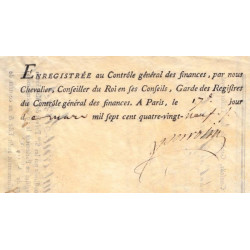 ENREGISTRÉE au Contrôle général des finances, par nous
Chevalier, Conseiller du Roi en ses Conseils, Garde des Registres
du Contrôle général des finances. A Paris, le 17e jour
de mars mil sept cent quatre-vingt-neuf